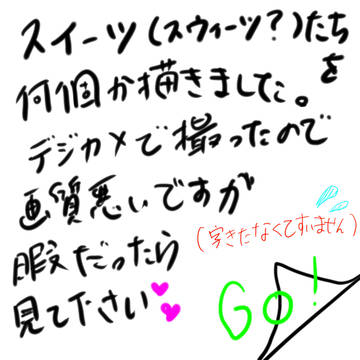 スイーツ(スウィーツ?)たちを
何個か描きました。
デジカメで撮ったので
画質悪いですが
暇だったら
見て下さい
(字きたなくてすいません)
GO!